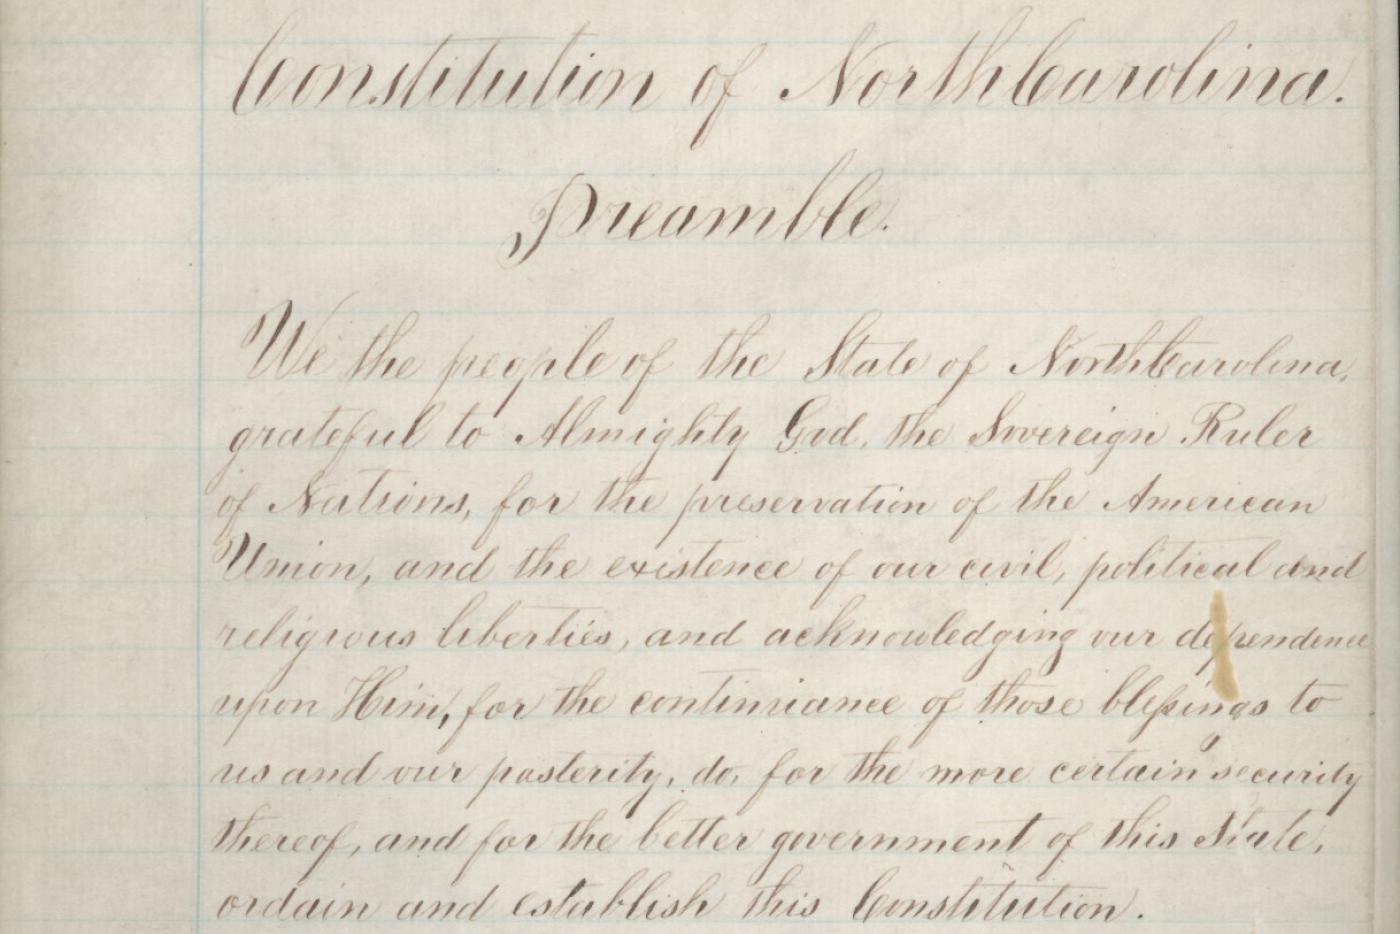 Constitution of North Carolina.
Preamble.
We the people of the State of North Carolina,
grateful to Almighty God, the Sovereign Ruler
of Nations, for the preservation of the American
Union, and the existence of our civil, political and
religious liberties, and acknowledging our dependence
upon Him, for the continuance of those blessings to
us and our posterity, do, for the more certain security
thereof, and for the better government of this State,
ordain and establish this Constitution.